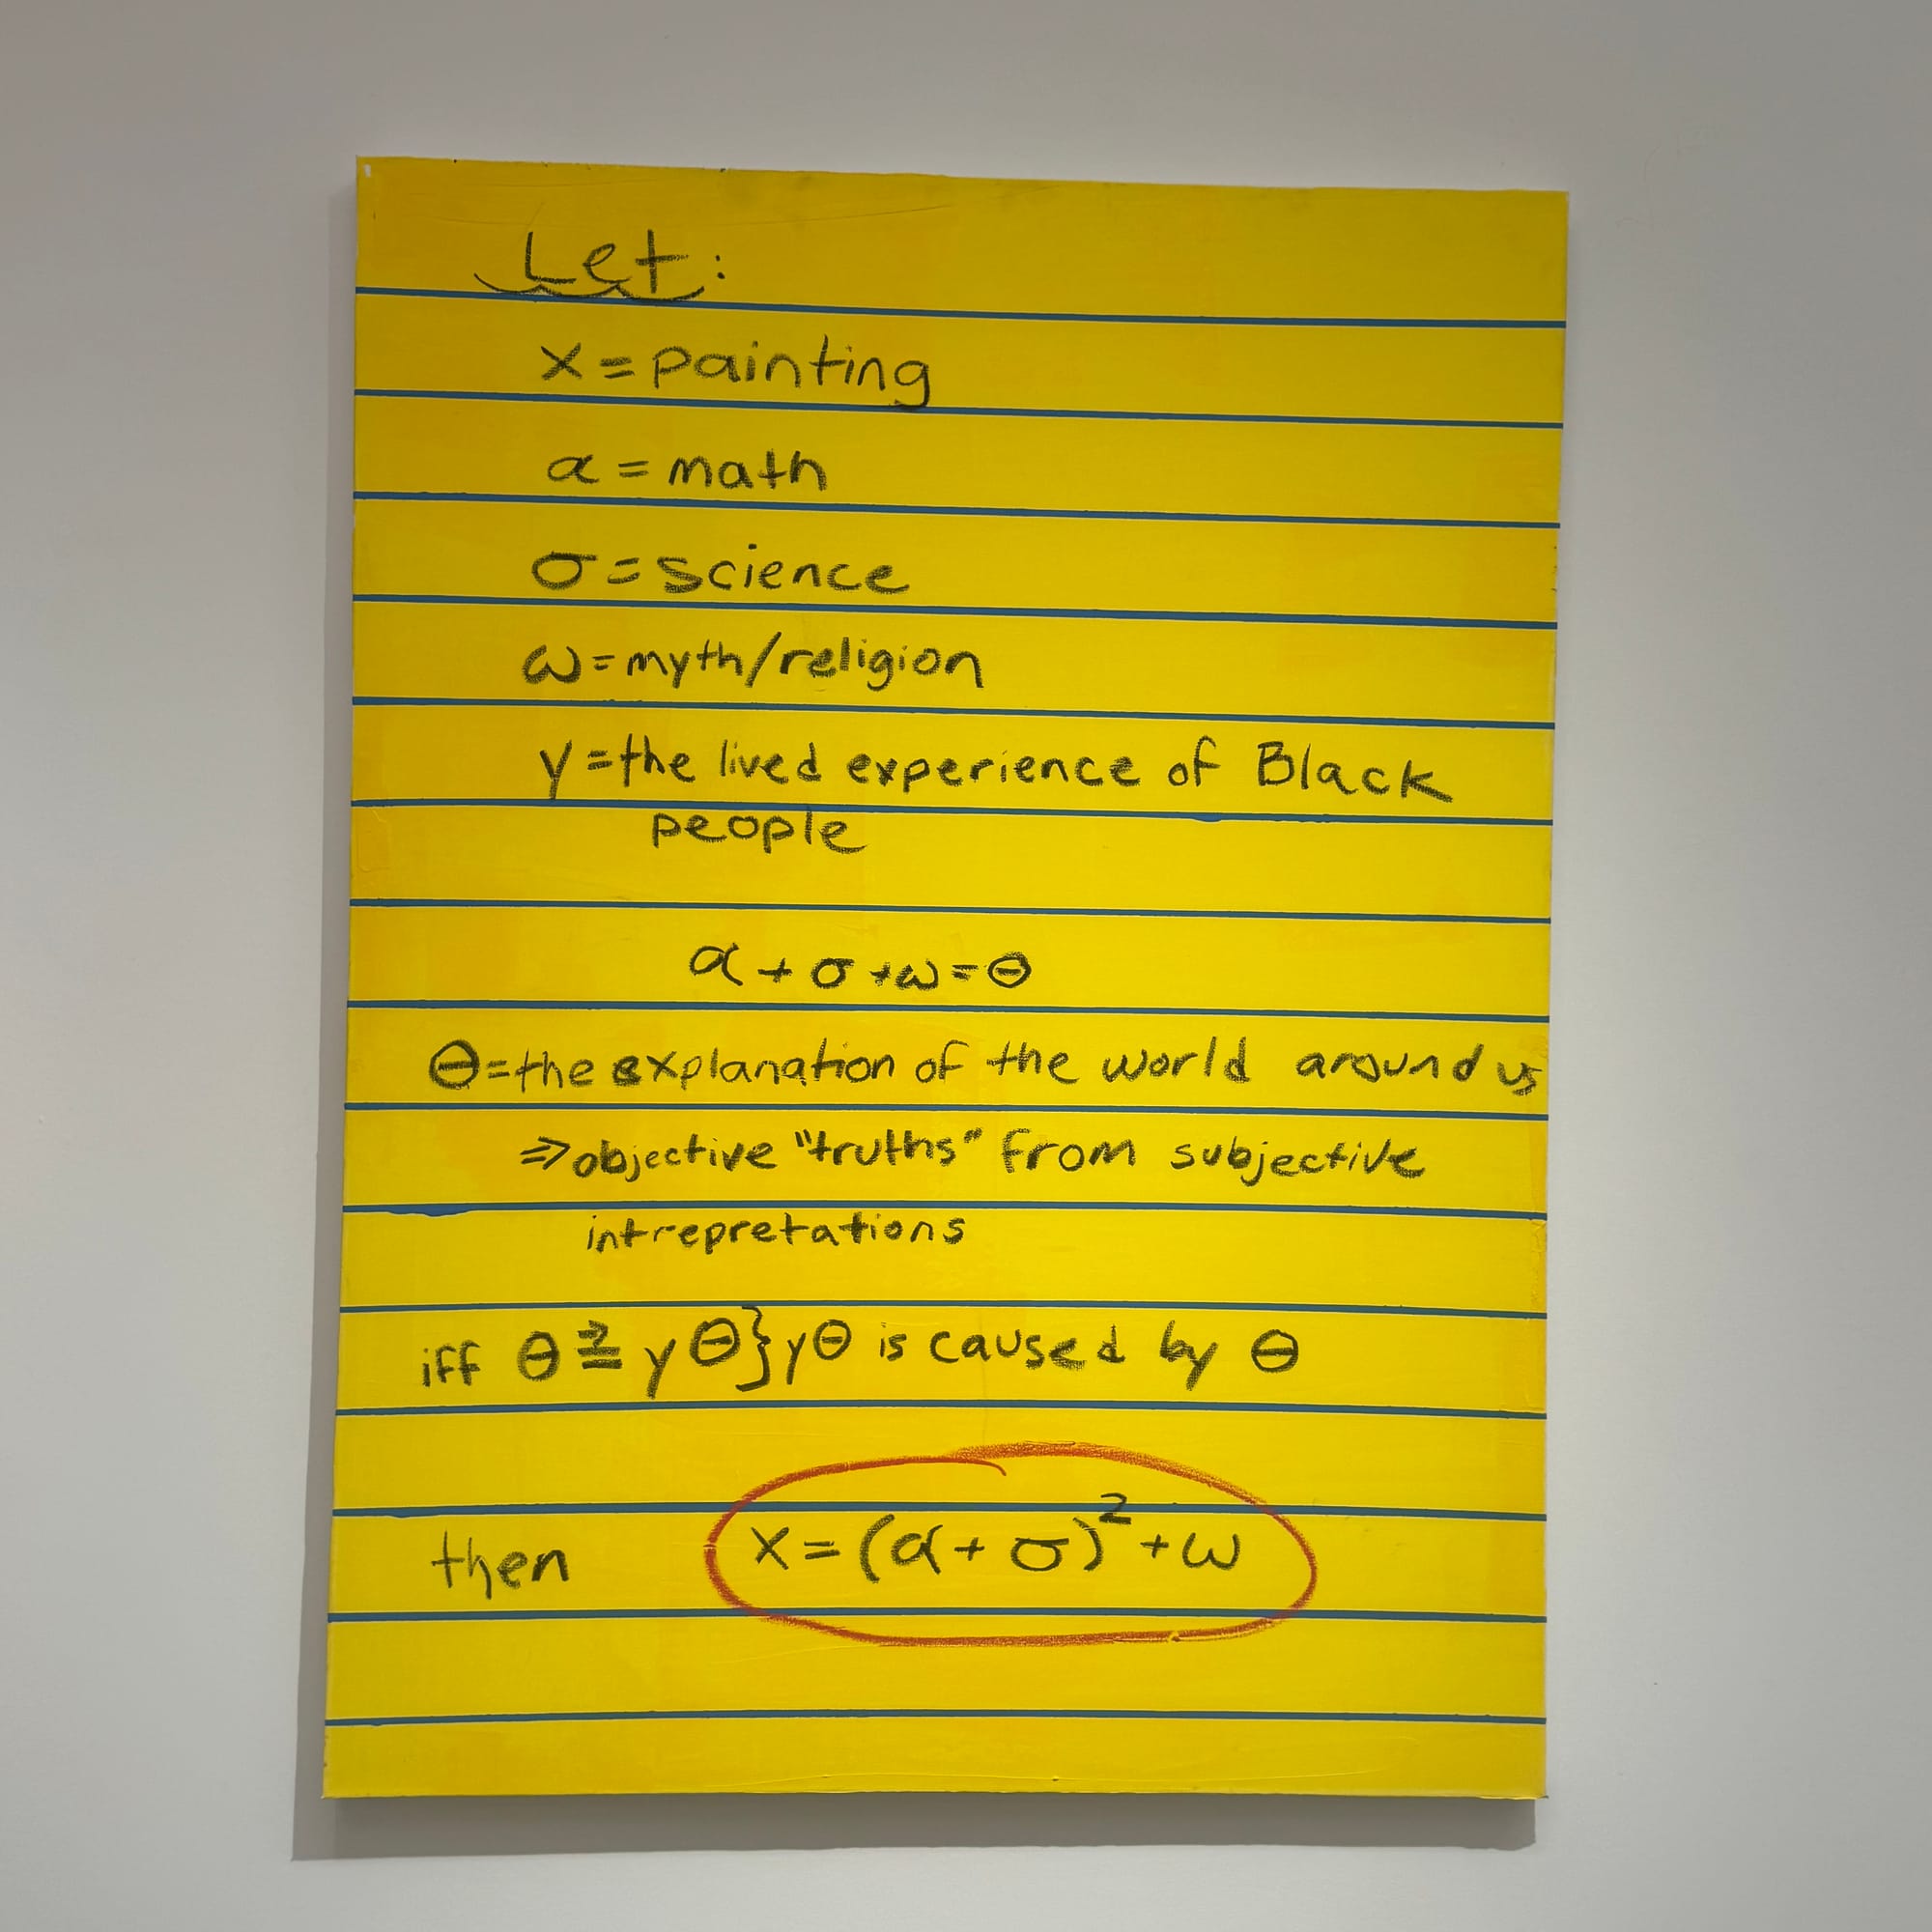 Let:
x = painting
α = math
σ = science
ω = myth/religion
y = the lived experience of Black
people
α + σ + ω = θ
θ = the explanation of the world around us
⇒ objective "truths" from subjective
intrepretations
iff θ ≧ yθ } yθ is caused by θ
then x = (α + σ)² + ω